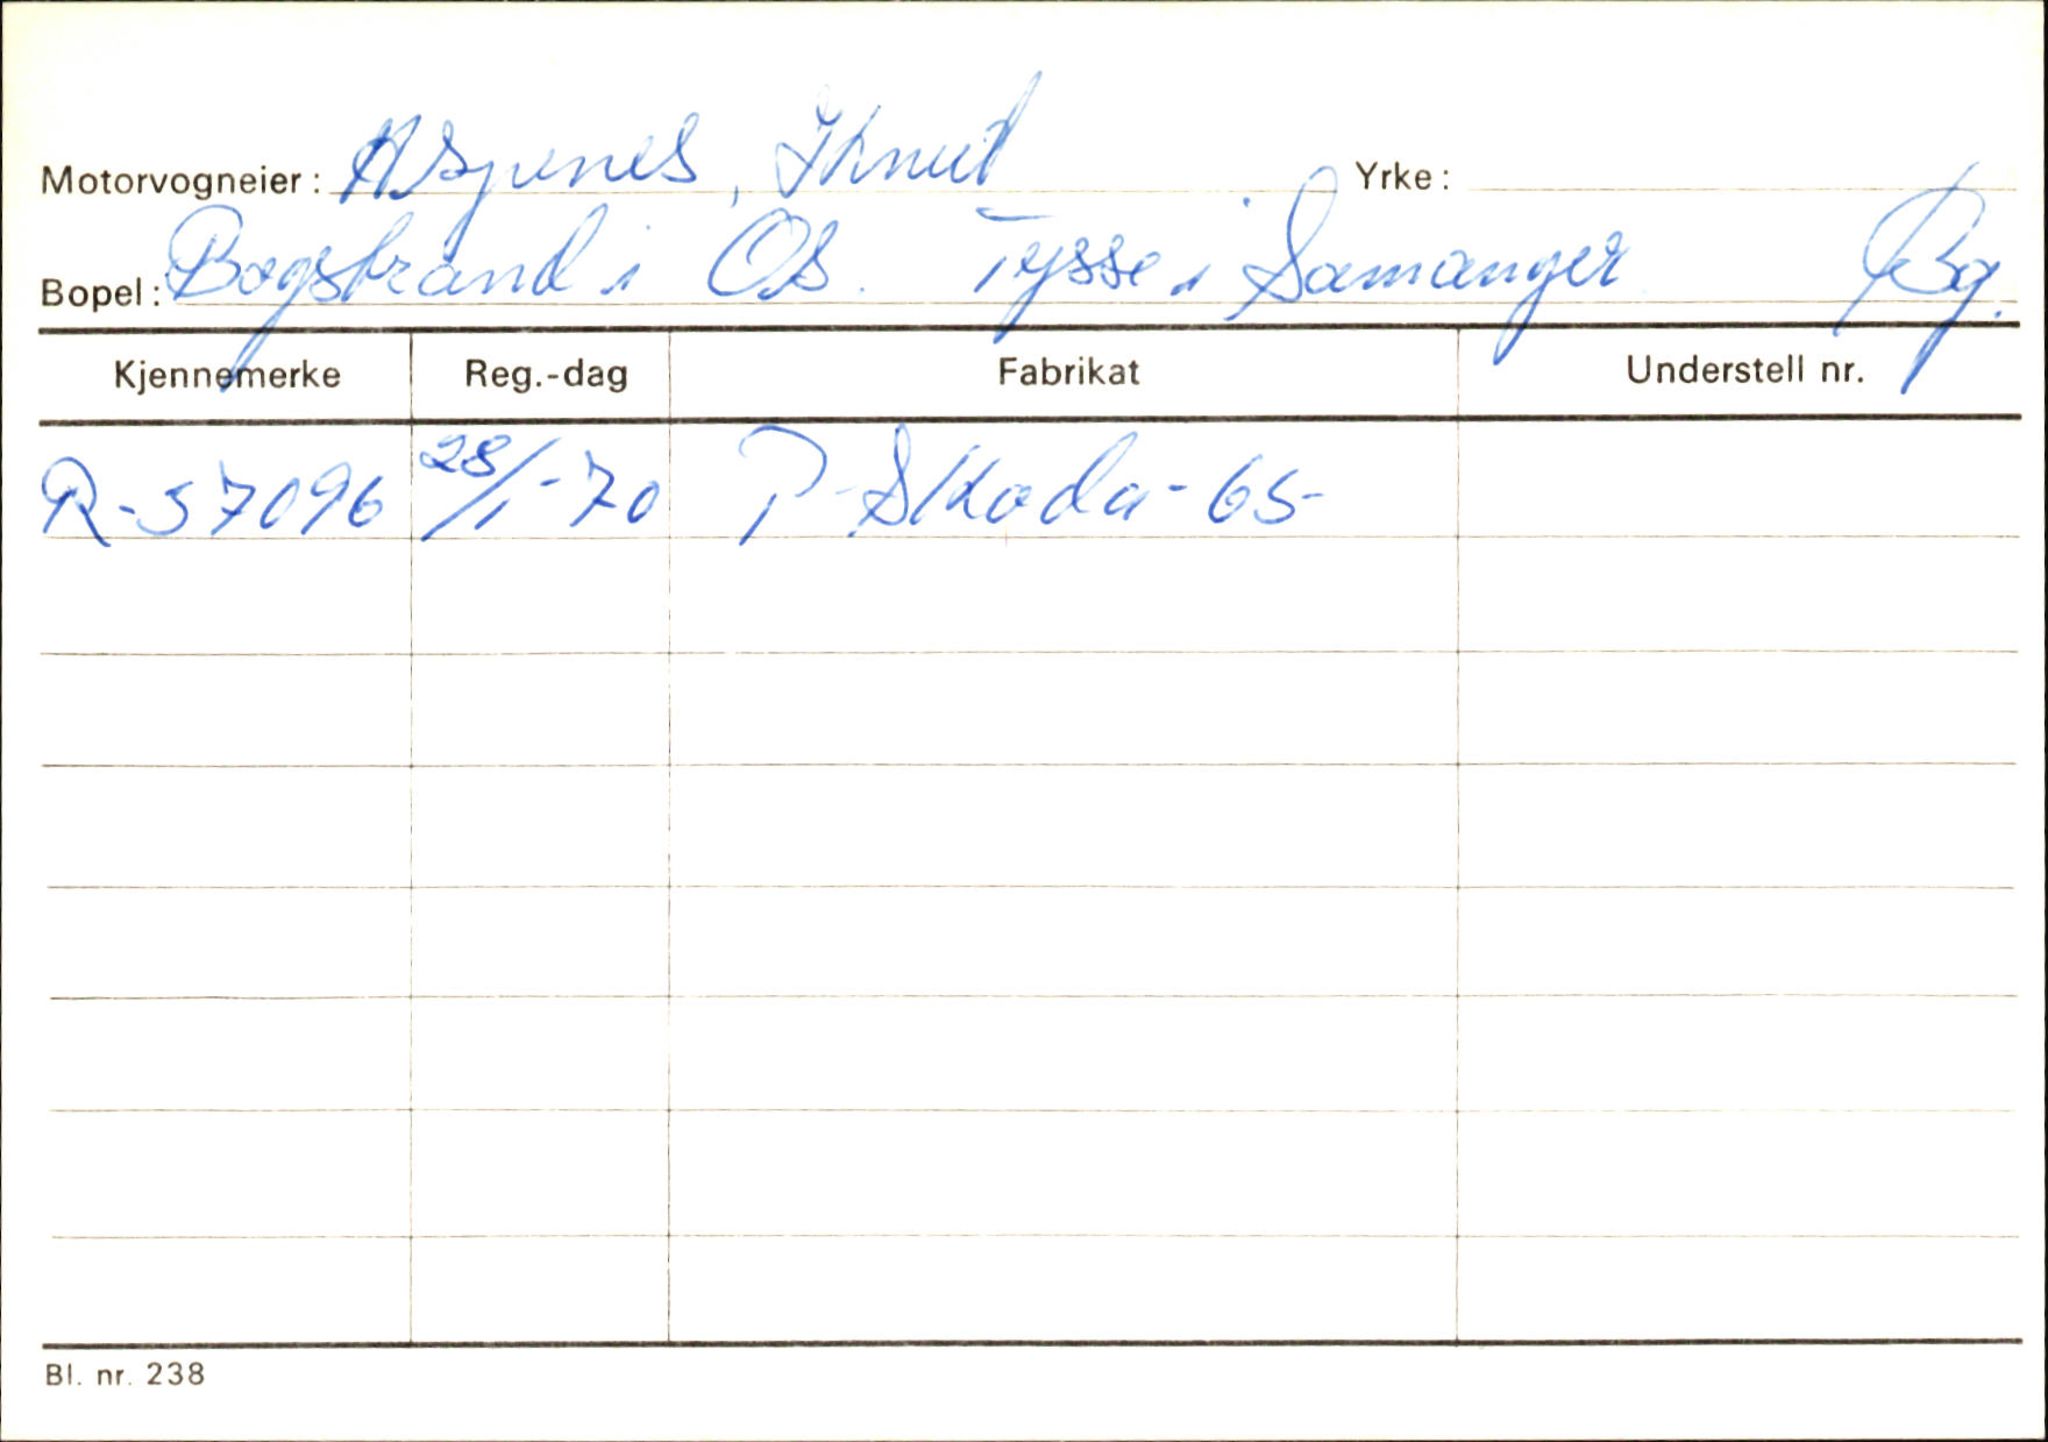 Motorvogneier: Asjenes, Knut Yrke:
Bopel: Bogstrand i Os. Tysse i Samanger Bg.
Kjennemerke Reg.-dag Fabrikat Understell nr.
R-57096 28/1-70 P-Skoda-65-
Bl. nr. 238